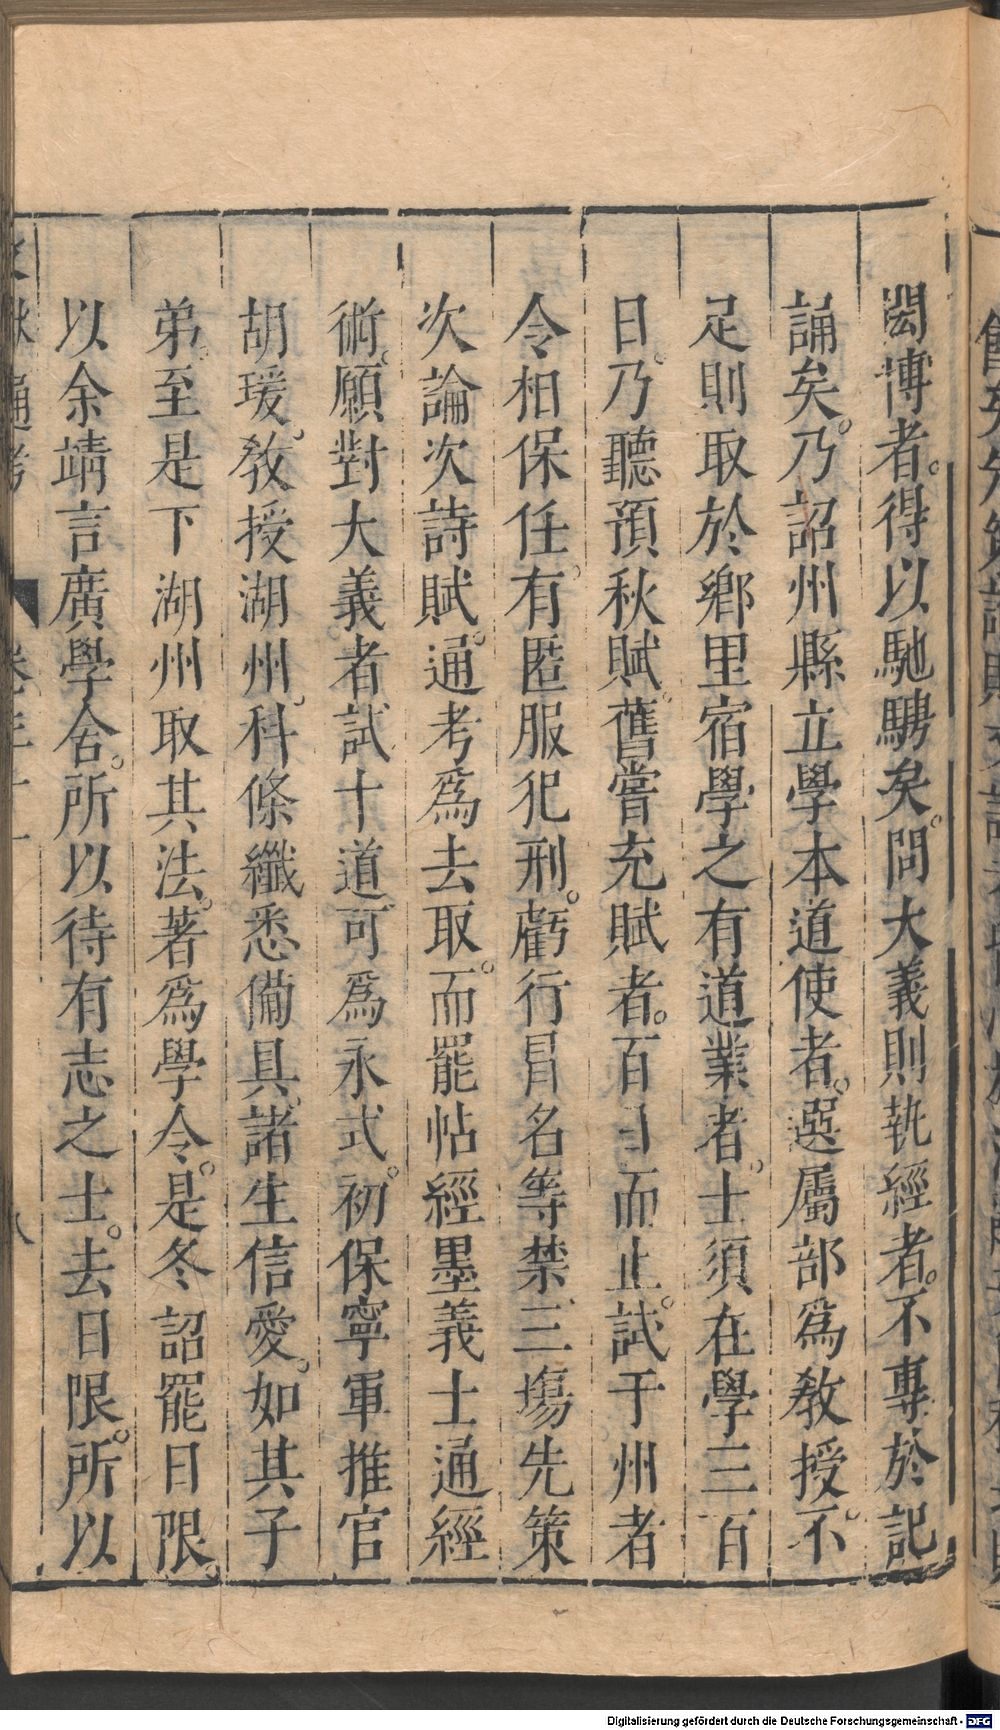 閎博者。得以馳騁矣。問大義則執經者。不專於記
誦矣。乃詔州縣立學本道使者。選屬部爲教授。不
足則取於鄉里宿學之有道業者。士須在學三百
日。乃聽預秋賦。舊嘗充賦者。百日而止。試于州者
令相保任。有匿服犯刑。虧行冒名等禁。三塲先策
次論次詩賦。通考爲去取。而罷帖經墨義士通經
術。願對大義者試十道。可爲永式。初保寧軍推官
胡瑗。教授湖州。科條纖悉備具。諸生信愛。如其子
弟。至是下湖州取其法。著爲學令。是冬詔罷日限。
以余靖言廣學舍。所以待有志之士。去日限。所以
文獻通考 卷三十一 八
Digitalisierung gefördert durch die Deutsche Forschungsgemeinschaft - DFG